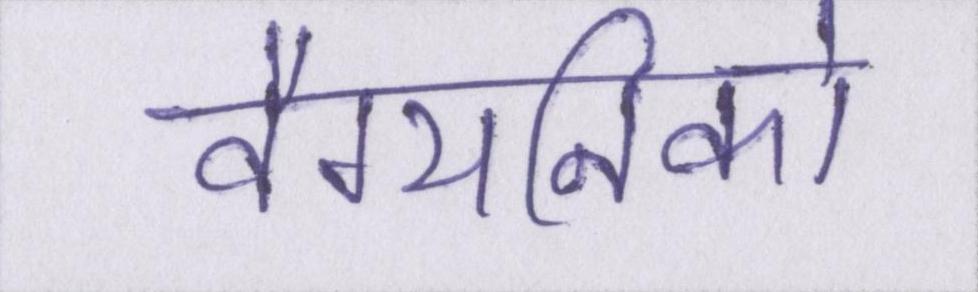 वैग्यनिको